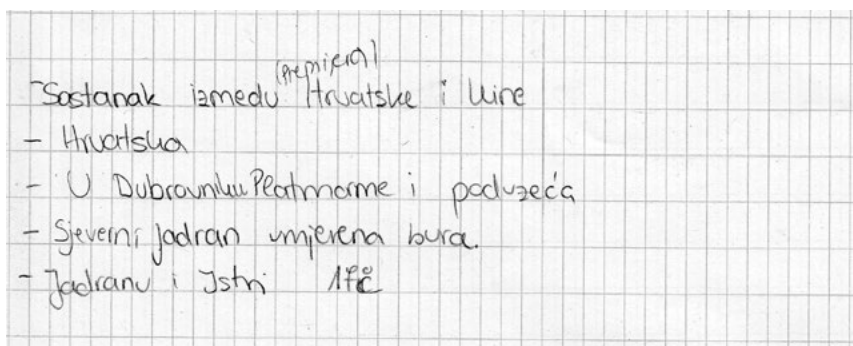 (premijera)
- Sastanak između Hrvatske i Kine
- Hrvatska
- U Dubrovniku Platforme i poduzeća
- Sjeverni Jadran umjerena bura.
- Jadranu i Istri 17°C